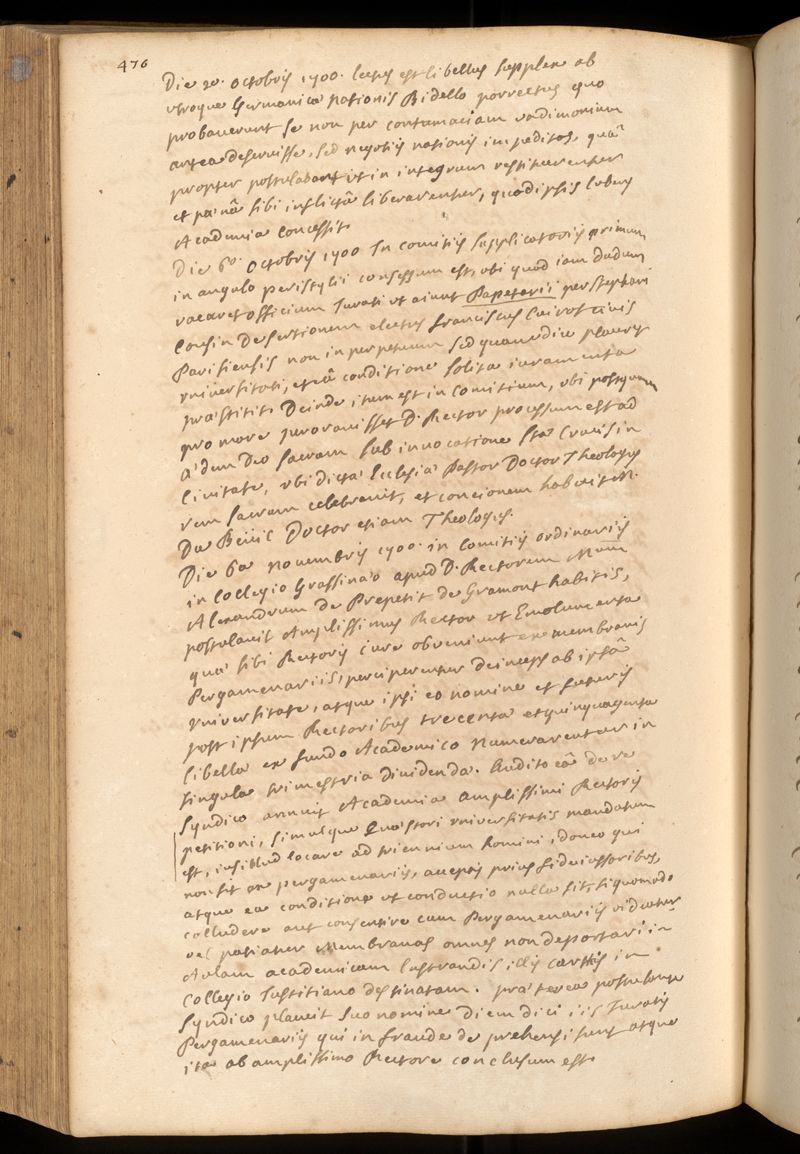 476
Die 2a. octobris 1700. lectus est libellus supplex ab
utroque Germanicæ nationis Bidello porrectus quo
probaverunt se non per contumaciam vadimonium
antea deseruisse, sed negotiis nationis impeditos, quã
propter postulabant ut in integrum restituerentur
et pœnâ sibi inflictâ liberarentur, quod ipsis lubens
Academia concessit.
Die 6a. octobris 1700 In comitiis supplicatoriis primum
in angulo peristylii consessum est, ubi quod iam dudum
vacaret officium Jurati ut aiunt Papetarii per Stephani
Cousin desertionem electus franciscus Cuirot civis
Parisiensis non in perpetuum sed quamdiu placuerit
universitati, et eâ conditione solita iuramenta
præstitit. Deinde itum est in Comitium, ubi postquam
pro more peroravisset D. Rector processum est ad
Ædem Deo sacram sub invocatione Stæ Crucis in
Civitate, ubi dictæ Ecclesiæ Pastor Doctor Theologus
rem sacram celebravit, et concionem habuit M.
Doctor etiam Theologus.
Die 6a novembris 1700. in comitiis ordinariis
in Collegio Grassinæo apud D. Rectorem Mum
Alexandrum de Prepetit de Gramont habitis,
postulavit Amplissimus Rector ut Emolumenta
quæ sibi Rectoris iure obveniunt ex membranis
Pergamenariis, perciperentur deinceps ab ipsâ
universitate, atque ipsi eo nomine et futuris
post ipsum Rectoribus trecenta et quinquaginta
libella ex fundo Academico numerarentur in
singula trimestria dividenda. Audito eâ de re
Syndico annuit Academia amplissimi Rectoris
petitioni, simulque Quæstori universitatis mandatum
est, ius illud locare ad triennium homini idoneo qui
non sit ex pergamenariis, acceptis prius fideiussoribus,
atque ea conditione ut conductio nulla sit, si quomodo
colludere aut consentire cum Pergamenariis videatur
vel patiatur membranas omnes non deportari in
Aulam academicam lustrandis illis cartis in
Collegio Iustitiano destinatam. præterea postulante
Syndico placuit suo nomine diem dici iis Juratis
Pergamenariis qui in fraude deprehensi sunt atque
ita ab amplissimo Rectore conclusum est.